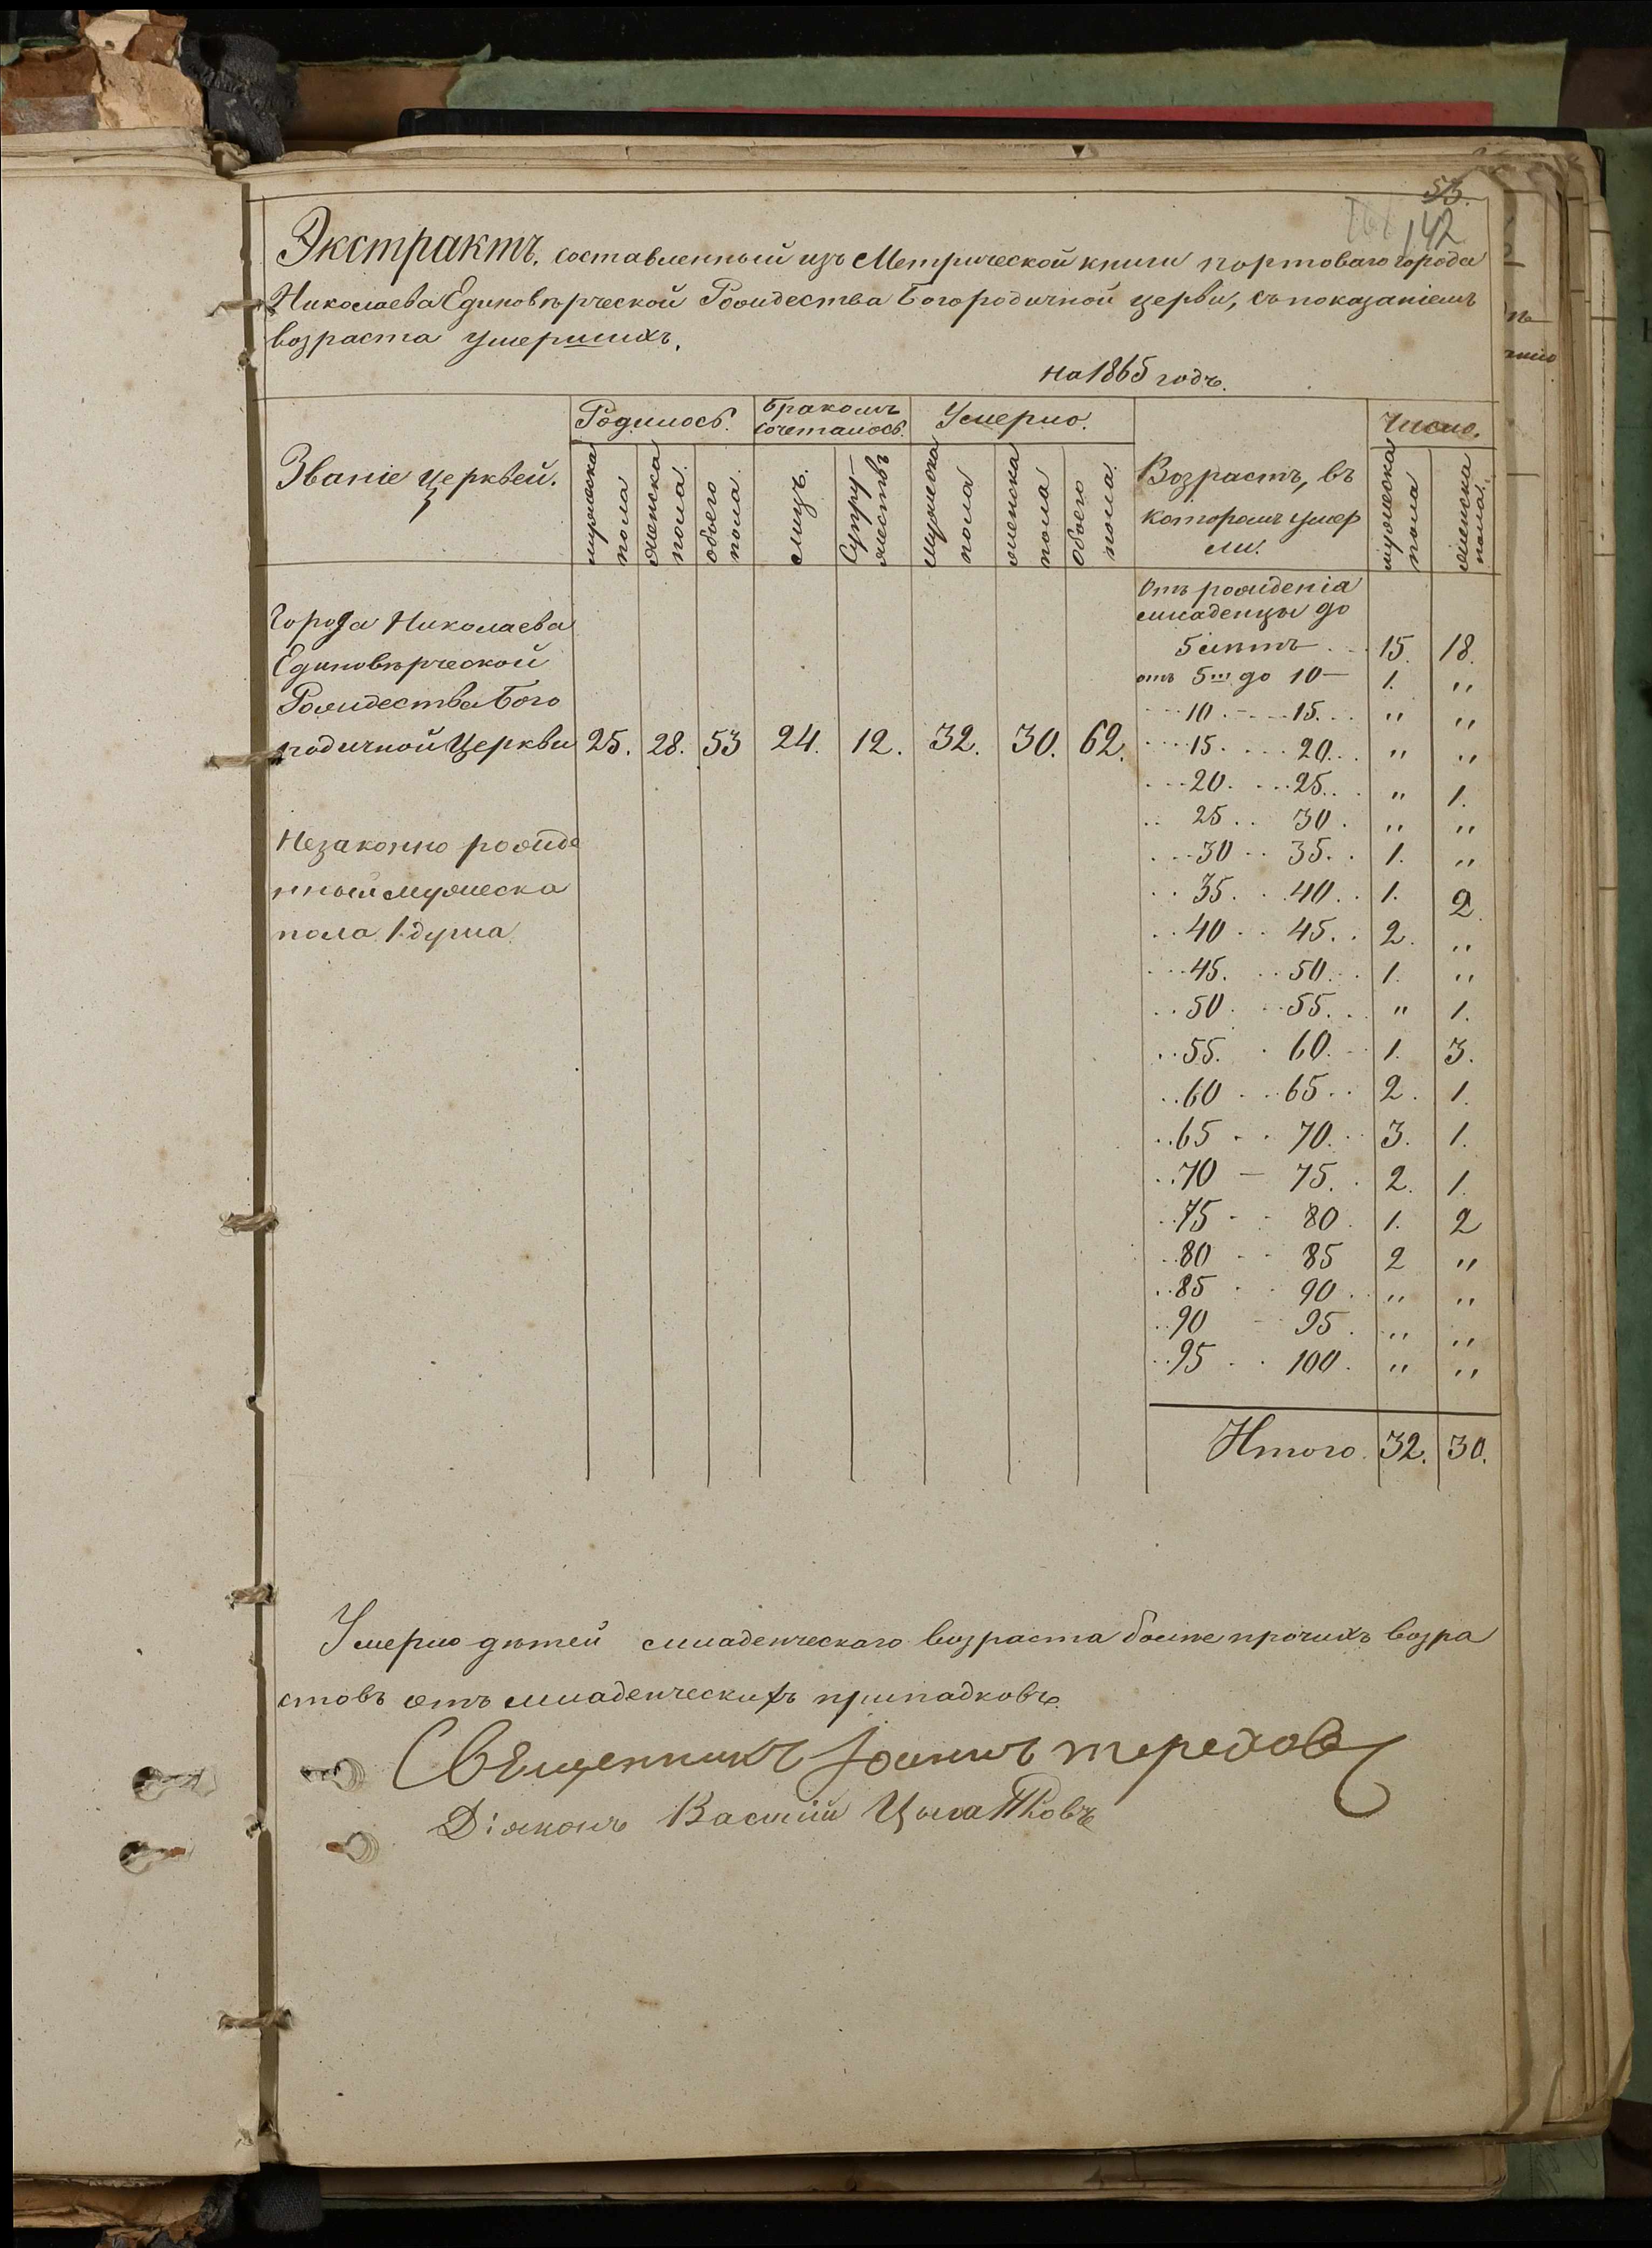 53.
142
Экстрактъ, составленный изъ Метрической книги портоваго города
Николаева Единовѣрческой Рождества Богородичной церви, съ показаніемъ
возраста умершихъ.
на 1865 годъ.
Званіе церквей.
Родилось.
Бракомъ
сочеталось.
Умерло.
Возрастъ, въ
которомъ умер
ли.
Число.
мужеска
пола
женска
пола
обоего
пола.
лицъ.
Супру-
жествъ
мужеска
пола
женска
пола
обоего
пола.
мужеска
пола
женска
пола.
Города Николаева
Единовѣрческой
Рождества Бого
родичной Церкви 25. 28. 53 24. 12. 32. 30. 62.
Незаконно рожде
нный мужеска
пола 1. душа.
Отъ рожденія
младенцы до
5 лѣтъ 15. 18.
отъ 5ти до 10 — 1. „
10 15. „ „
15. 20. „ „
20. 25. „ 1.
25 30. „ „
30 35. 1. „
35. 40. 1. 2.
40 45. 2. „
45. 50. 1. „
50 55. „ 1.
55. 60. 1. 3.
60 65. 2. 1.
65 70. 3. 1.
70 — 75. 2. 1.
75 80. 1. 2
80 85 2 „
85 90. „ „
90 95. „ „
95 100. „ „
Итого. 32. 30.
Умерло дѣтей младенческаго возраста болѣе прочихъ возра
стовъ отъ младенческихъ припадковъ.
Священникъ Іоаннъ тереховъ
Діяконъ Василій